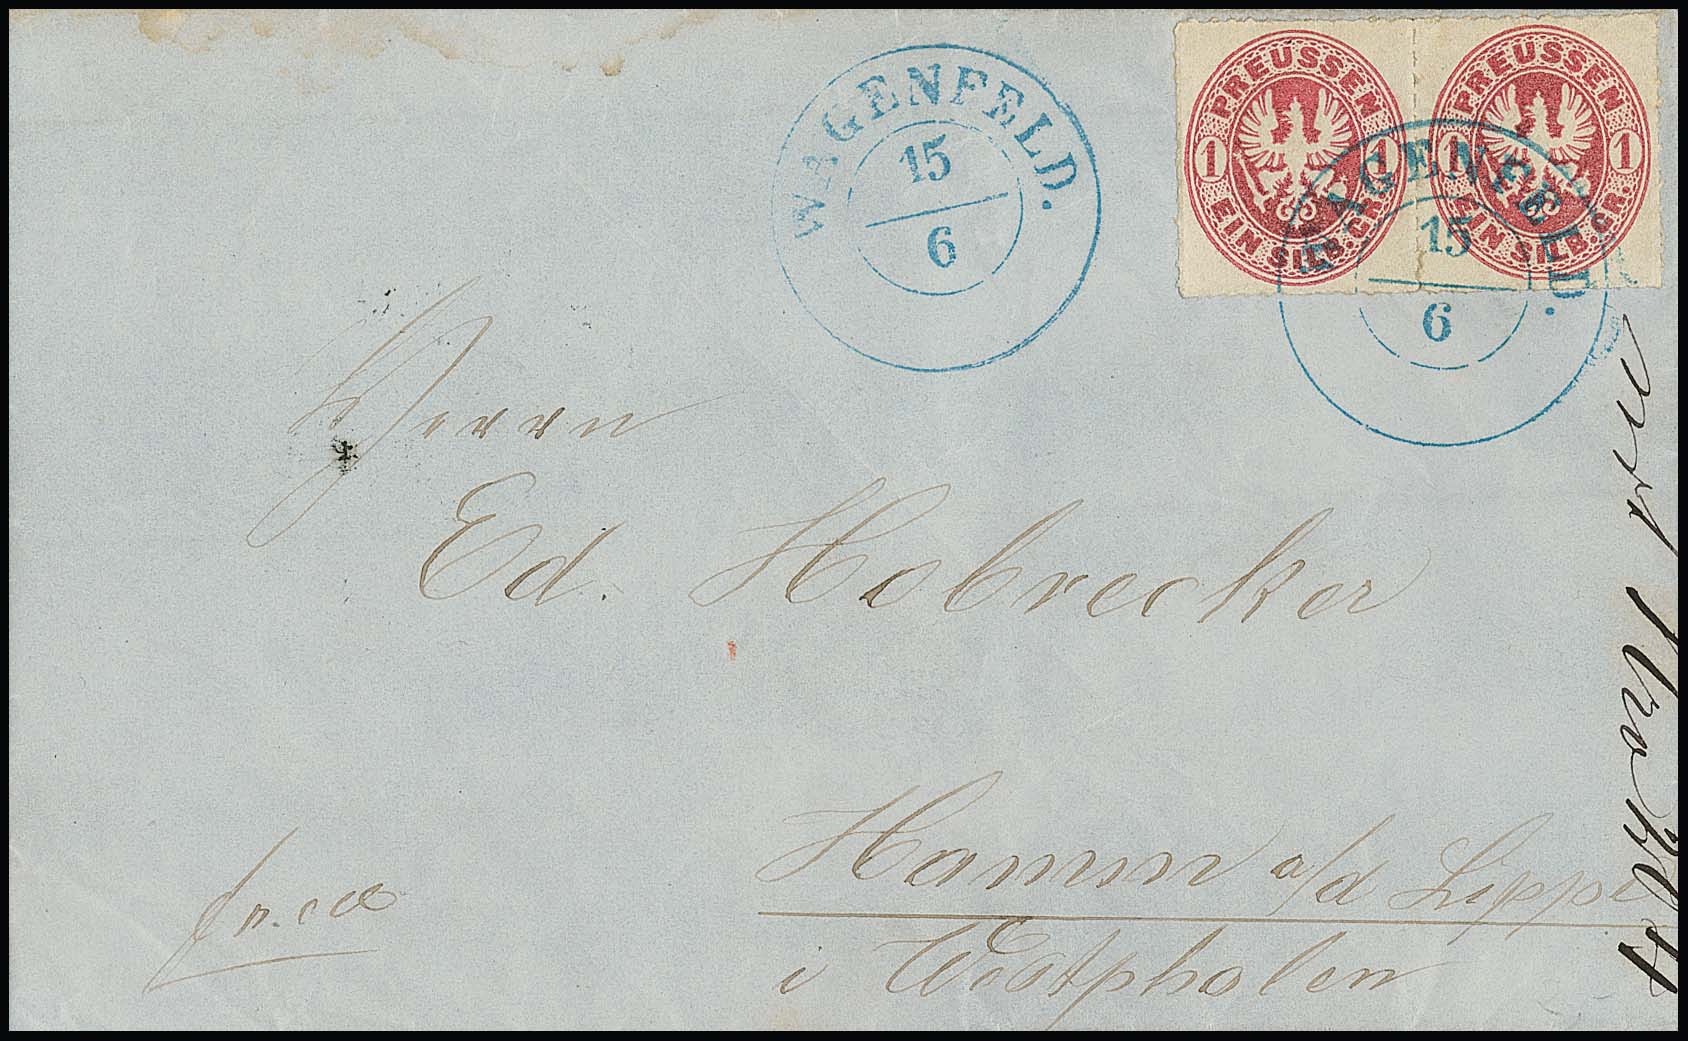 WAGENFELD.
15
6
PREUSSEN
1 1
EIN SILB.GR.
PREUSSEN
1 1
EIN SILB.GR.
WAGENFELD.
15
6
Herrn
Ed. Hobrecker
Hamm a/d Lippe
i Westphalen